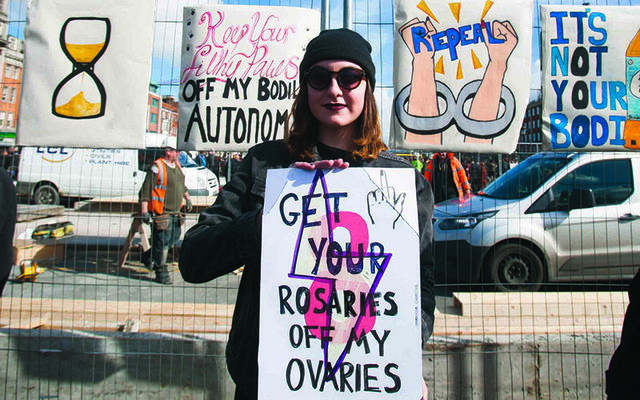 Keep Your
filthy Paws
OFF MY BODIL
AUTONOM
REPEAL
IT'S
NOT
YOUR
BODI
GET
YOUR
8
ROSARIES
OFF MY
OVARIES